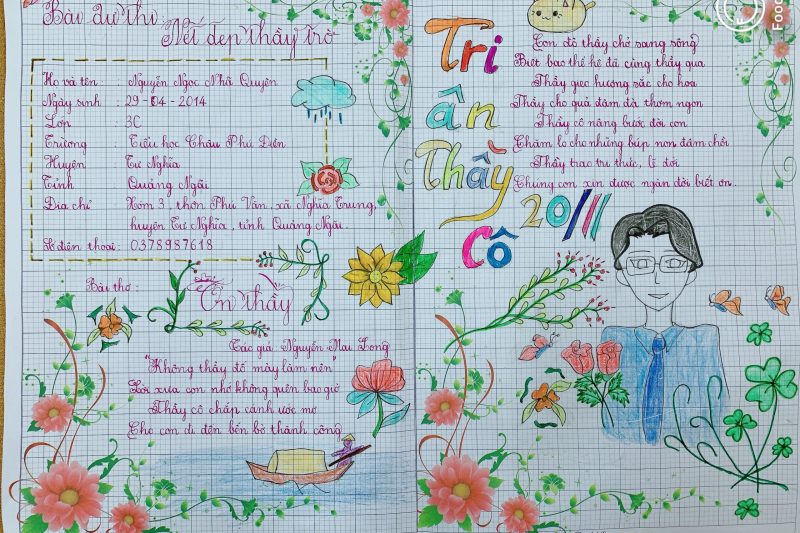 Bài dự thi
Nét đẹp thầy trò
Họ và tên : Nguyễn Ngọc Nhã Quyên
Ngày sinh : 29-04-2014
Lớp : 3C
Trường : Tiểu học Châu Phú Điền
Huyện : Tư Nghĩa
Tỉnh : Quảng Ngãi
Địa chỉ : Xóm 3, thôn Phú Văn, xã Nghĩa Trung,
huyện Tư Nghĩa, tỉnh Quảng Ngãi.
Số điện thoại : 0378987618
Bài thơ :
Ơn thầy
Tác giả: Nguyễn Mai Long
"Không thầy đố mày làm nên"
Lời xưa con nhớ không quên bao giờ
Thầy cô chắp cánh ước mơ
Cho con đi đến bến bờ thành công
Tri
ân
Thầy
Cô
20/11
Con đò thầy chở sang sông
Biết bao thế hệ đã cùng thầy qua
Thầy gieo hương sắc cho hoa
Thầy cho quả đậm đà thơm ngon
Thầy cô nâng bước đời con
Chăm lo cho những búp non đâm chồi
Thầy trao tri thức, lẽ đời
Chúng con xin được ngàn đời biết ơn.
Food